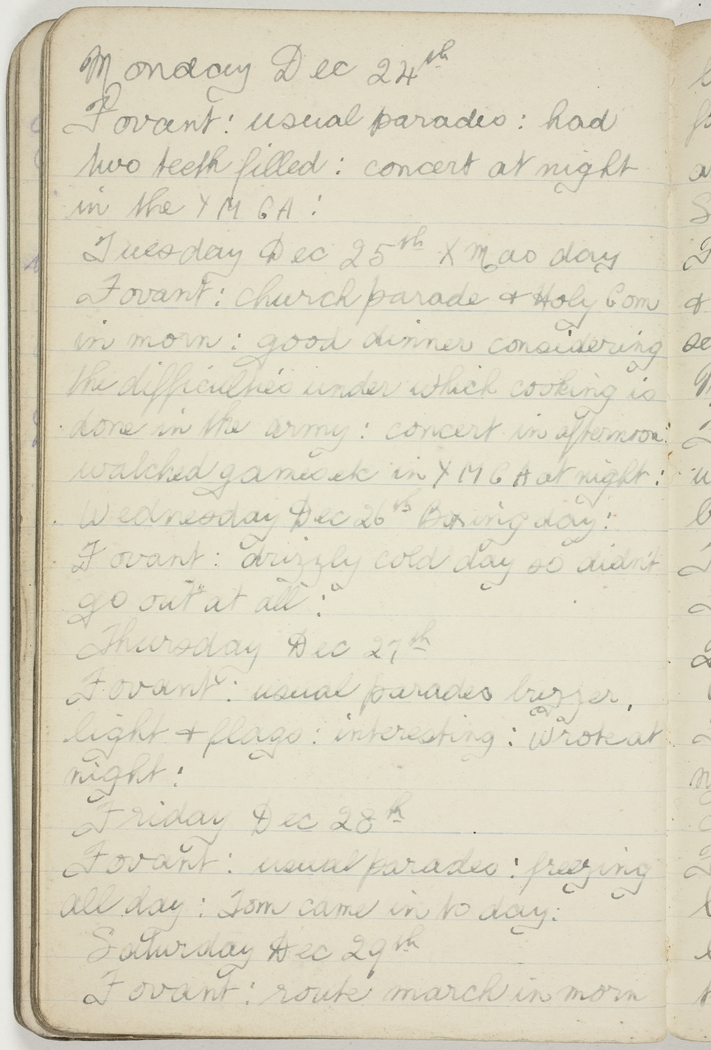 Monday Dec 24th
Fovant: usual parades: had
two teeth filled: concert at night
in the Y M C A:
Tuesday Dec 25th X Mas day
Fovant: church parade & Holy Com
in morn: good dinner considering
the difficulties under which cooking is
done in the army: concert in afternoon:
watched games etc in Y M C A at night:
Wednesday Dec 26th Boxing day:
Fovant: drizzly cold day so didn't
go out at all:
Thursday Dec 27th
Fovant: usual parades buzzer,
light & flags: interesting: Wrote at
night:
Friday Dec 28th
Fovant: usual parades: freezing
all day: Tom came in to day:
Saturday Dec 29th
Fovant: route march in morn